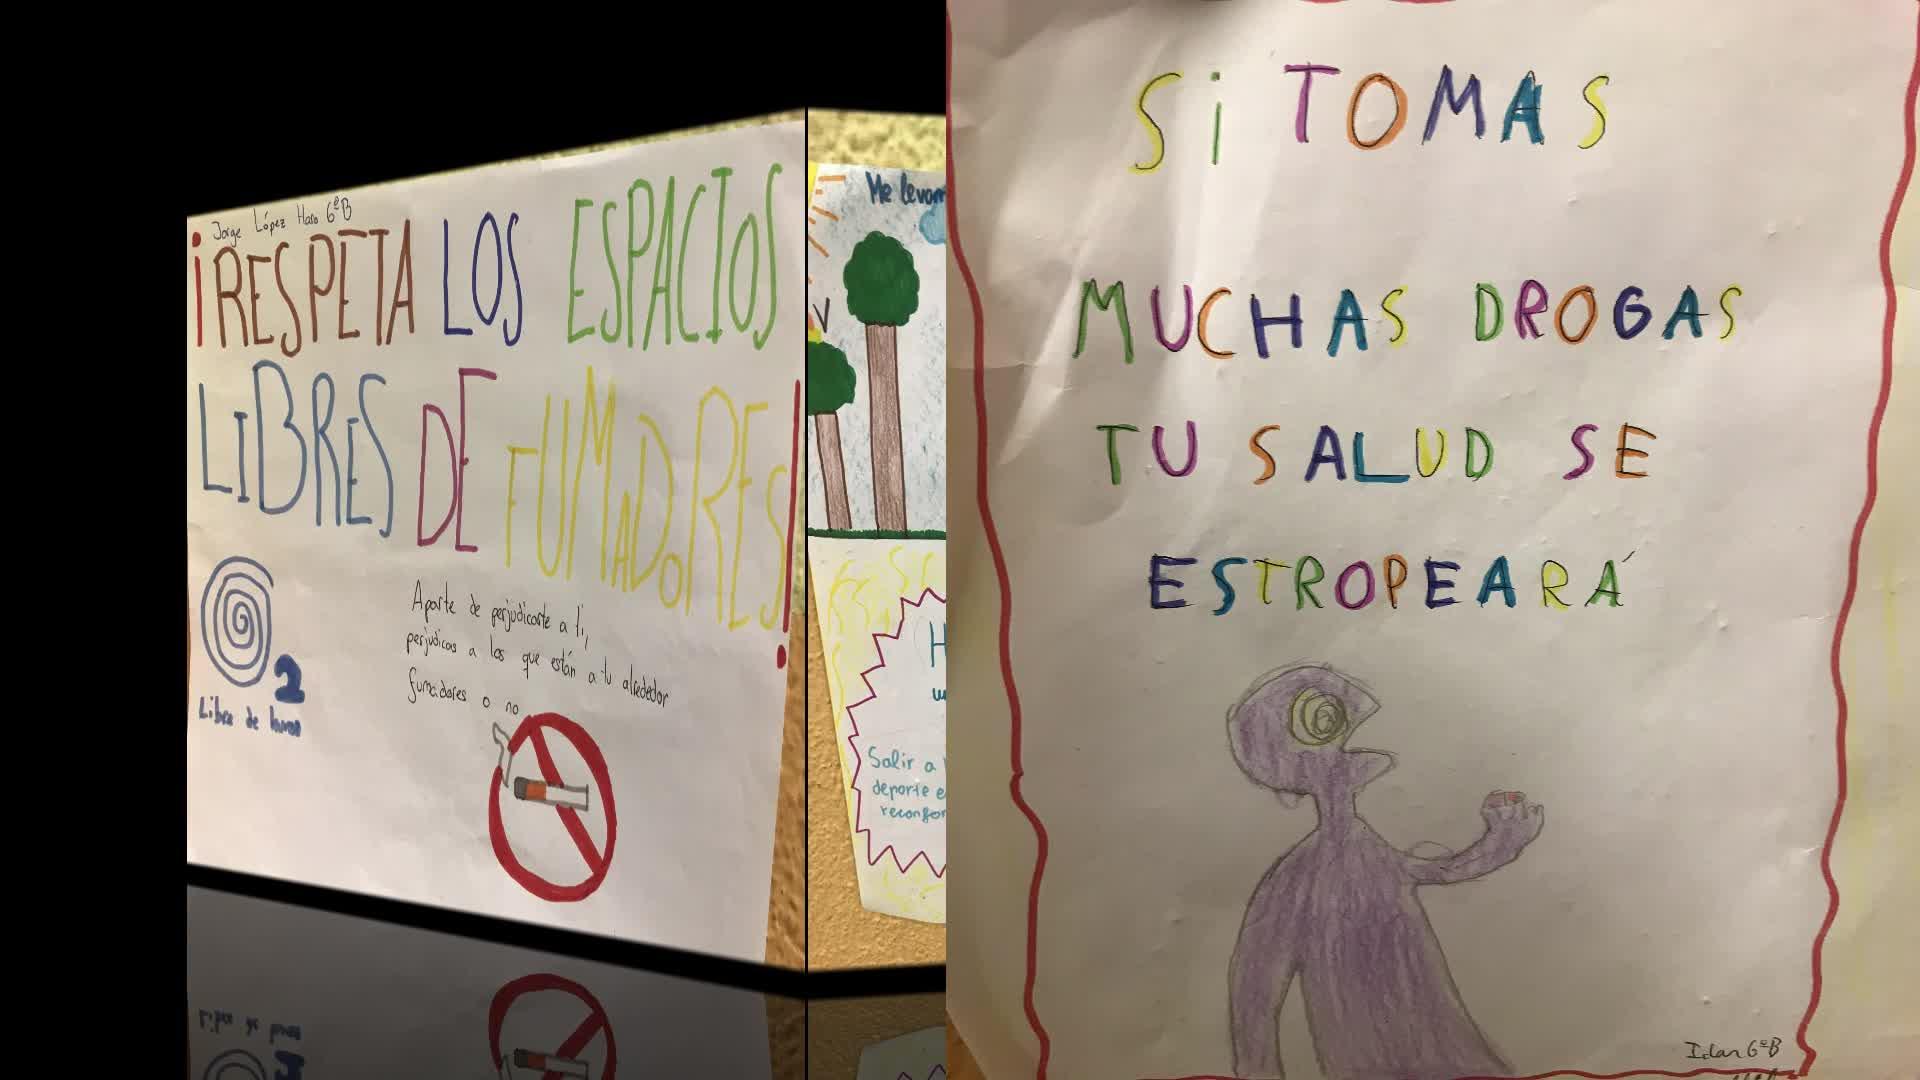 Jorge López Haro 6ºB
¡RESPETA LOS ESPACIOS
LIBRES DE FUMADORES!
Aparte de perjudicarte a ti,
perjudicas a los que están a tu alrededor
fumadores o no
O2
Libre de humos
Me levan
Salir a
deporte e
reconfor
Si TOMAS
MUCHAS DROGAS
TU SALUD SE
ESTROPEARÁ
6ºB